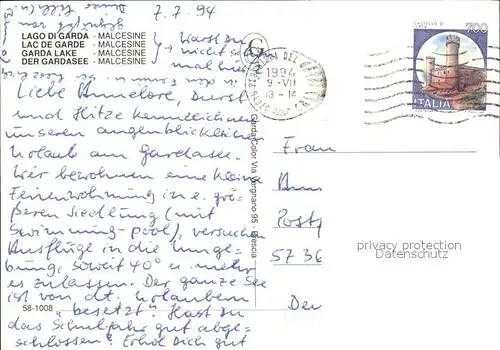 7.7.94
LAGO DI GARDA - MALCESINE
LAC DE GARDE - MALCESINE
GARDA LAKE - MALCESINE
DER GARDASEE - MALCESINE
Warst Du
nicht schon
mal hier
in den
Liebe Annelore, Durst
und Hitze kennzeichnen
unseren augenblicklichen
Urlaub am Gardasee.
Wir bewohnen eine kleine
Ferienwohnung in e. grö-
ßeren Siedlung (mit
Swimming-pool), versuchen
Ausflüge in die Umge-
bung, soweit 40° u. mehr
es zulassen. Der ganze See
ist von dt. Urlaubern
"besetzt". Hast Du
58-1008
das Schuljahr gut abge-
schlossen? Erhol Dich gut
GardaColor Via Vergnano 95 - Brescia
1994
9-VII
13-14
700
ITALIA
Frau
Ann
Postf
5736
De
privacy protection
Datenschutz